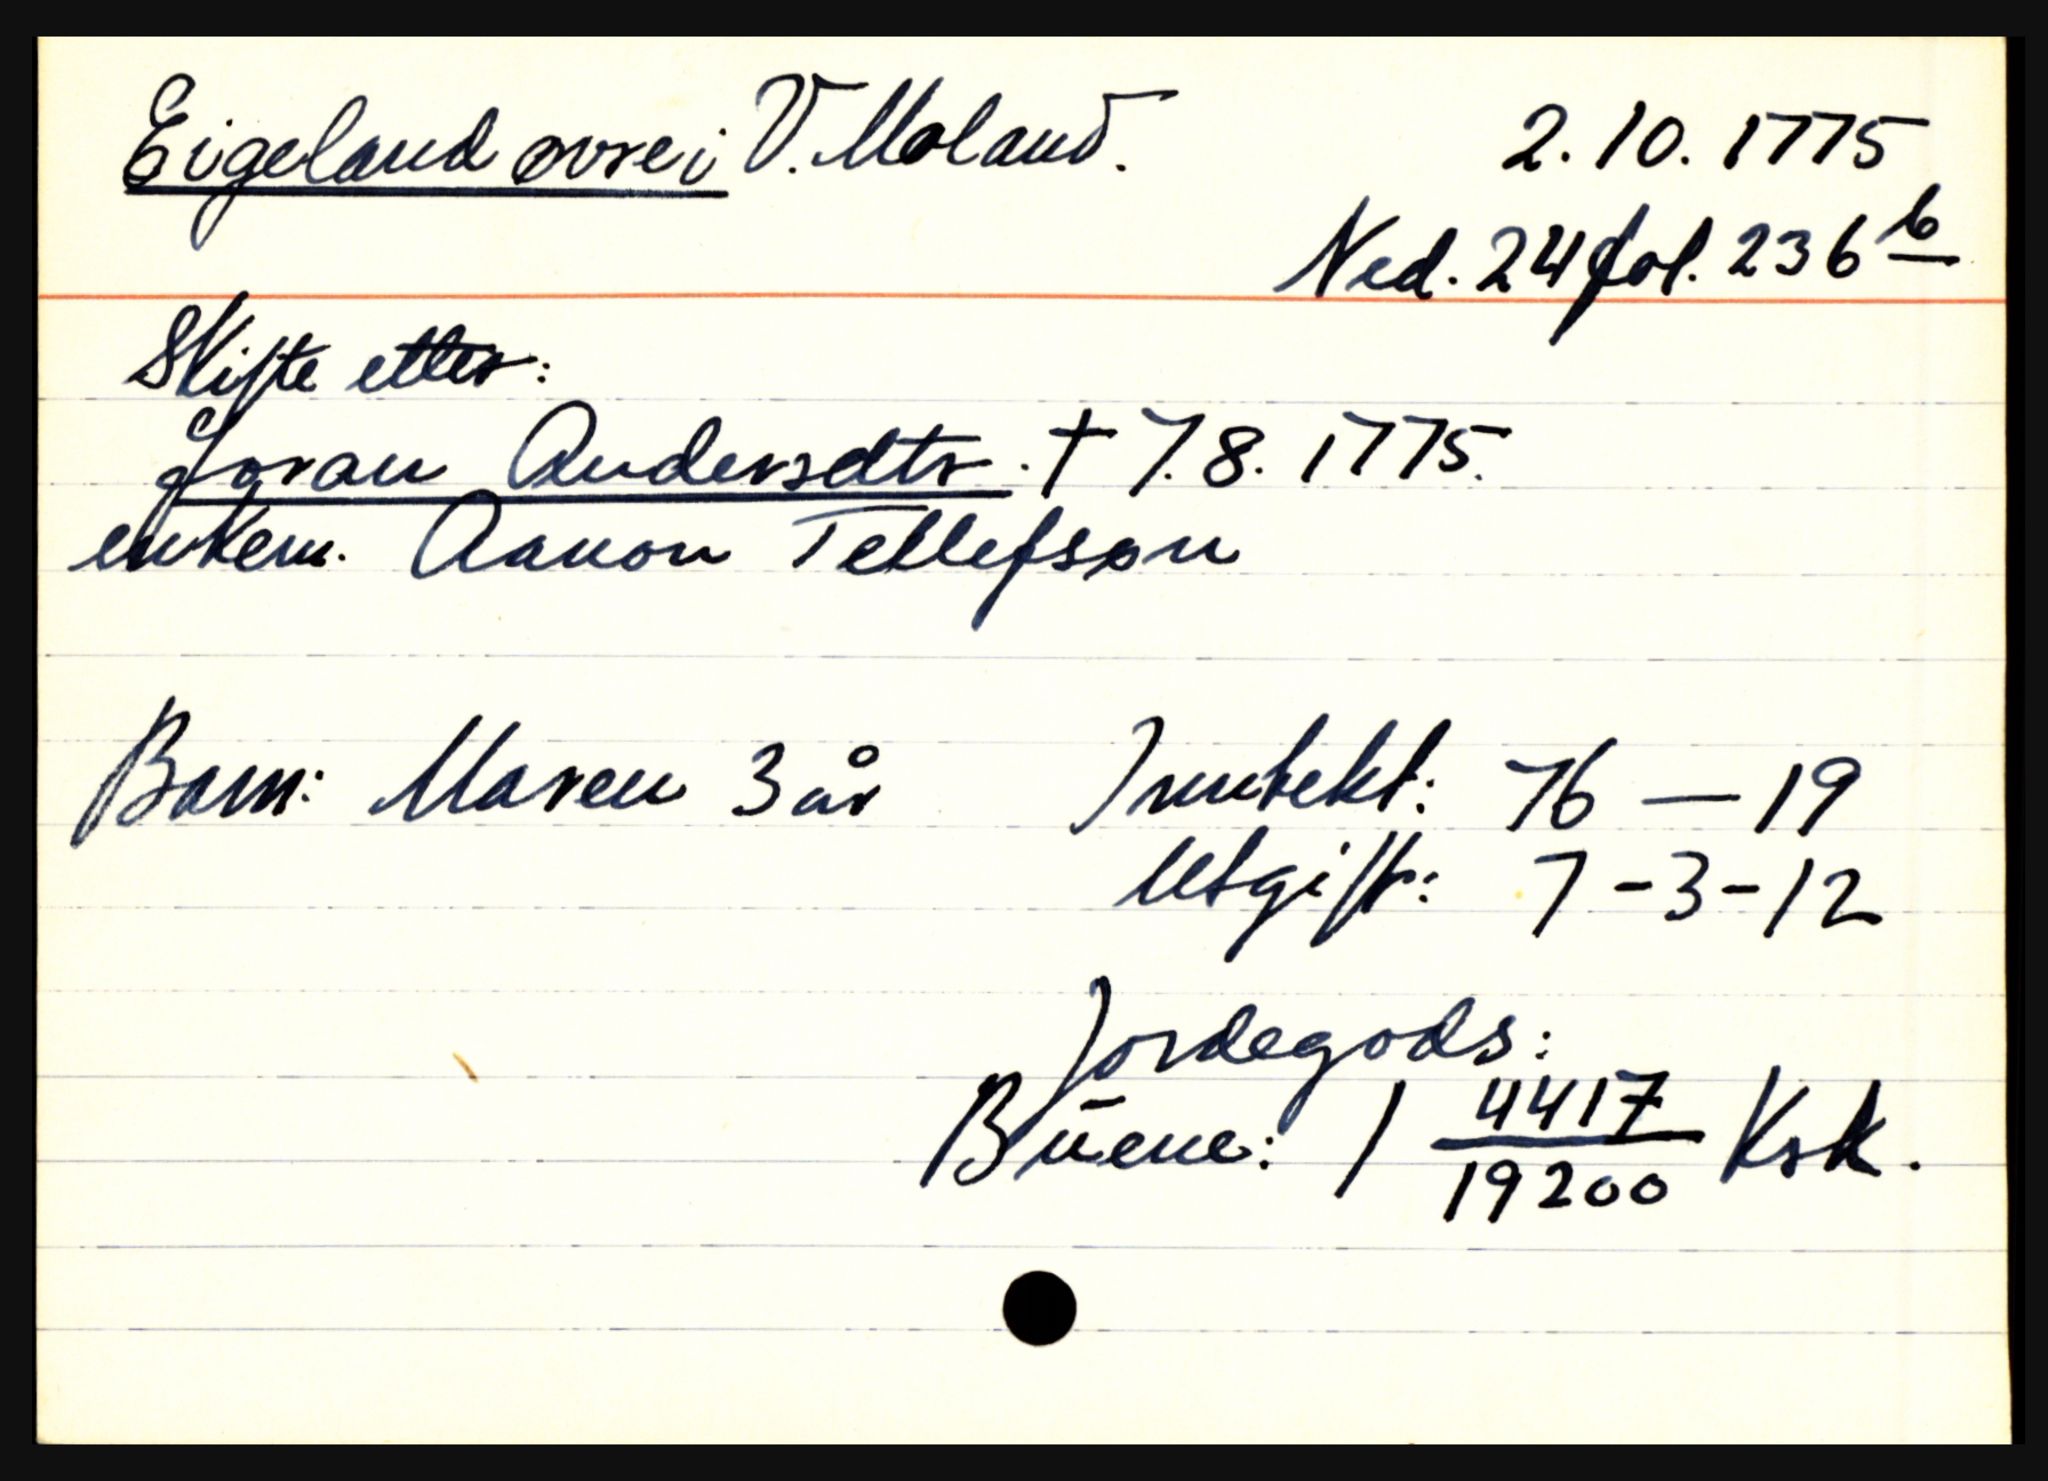 Eigeland øvre i V. Moland. 2.10.1775
Ned. 24 fol. 236 b
Skifte etter:
Joran Andersdtr. † 7.8.1775.
enkem. Aanon Tellefsøn
Barn: Maren 3 år
Inntekt: 76 — 19
Utgift: 7 - 3 - 12
Jordegods:
Buene: 1 4417/19200 Ksk.